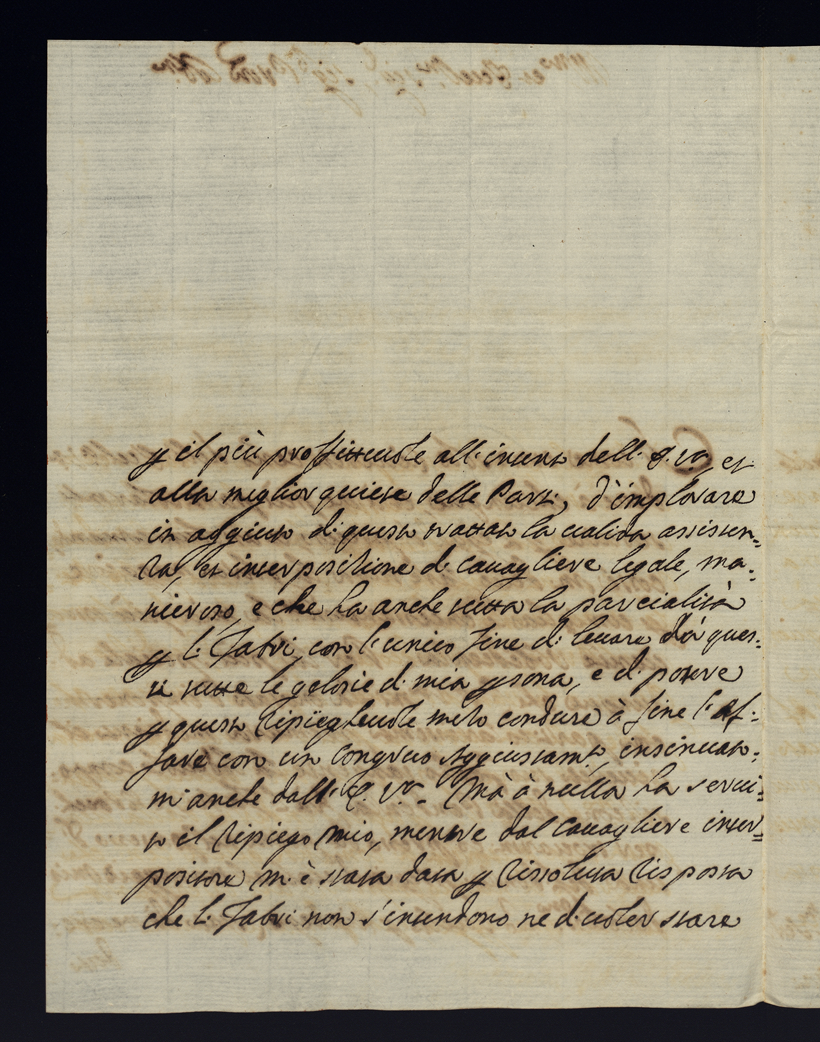 p il più proffitteuole all'intento dell' E. V., et
alla miglior quiete delle Parti, d'implorare
in aggiuto di questo trattato la ualida assisten=
za, et interpositione di Cauagliere legale, ma=
nieroso, e che ha anche tutta la parcialità
p li Fabri, con l'unico fine di leuare da ques=
ti tutte le gelosie di mia psona, e di potere
p questo lipieg heuole meto condure à fine l'af=
fare con un Congruo Aggiustamto, insinuato=
mi anche dall' E. Va. Mà à nulla ha serui=
to il ripiego mio, mentre dal Cauagliere inter=
positore mi è stata data p rissoluta risposta
che li Fabri non s'intendono ne di uoler stare